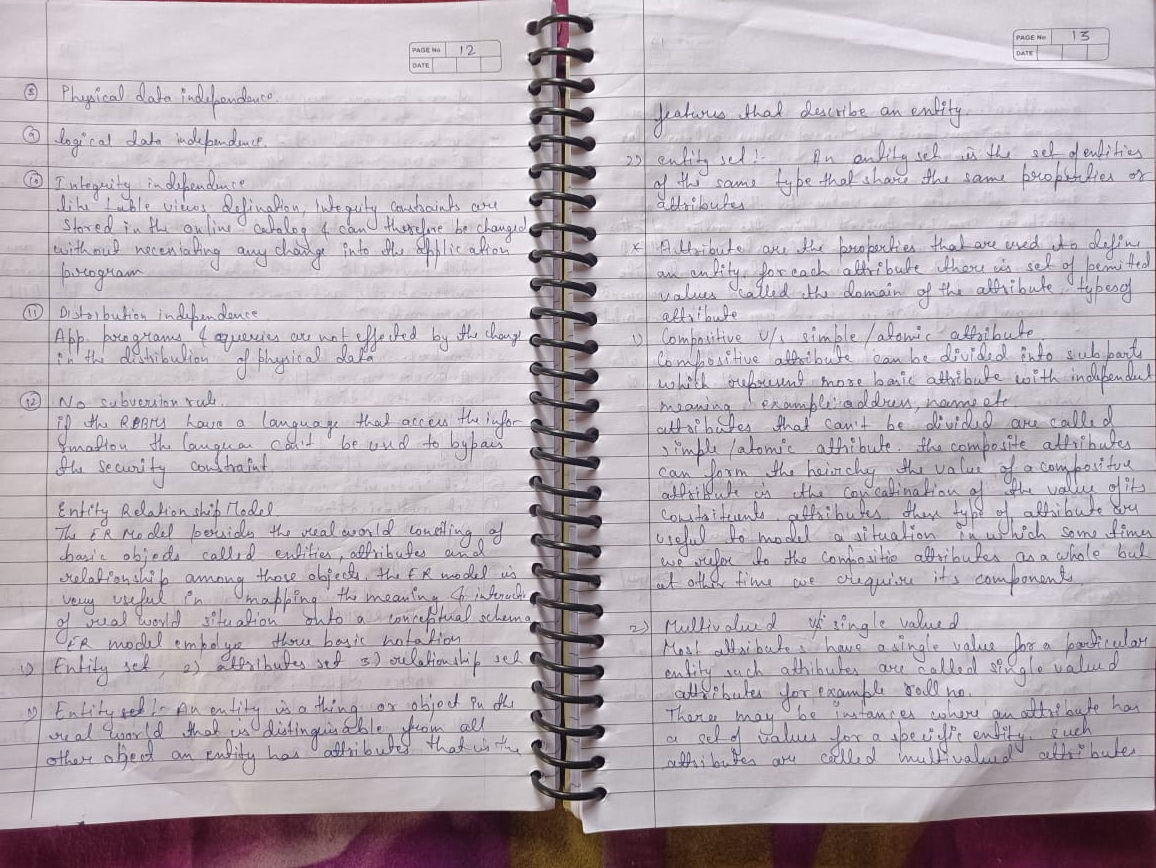 PAGE No 12
DATE
⑧ Physical data independence.
⑨ logical data independence.
⑩ Integrity independence
like table views defination, Integrity constraints are
stored in the online catalog & can therefore be changed
without neceniating any change into the application
program
⑪ Distribution independence
App. programs & queries are not effected by the change
in the distribution of physical data
⑫ No subversion rule.
if the RDBMS have a language that access the infor-
mation the languar can't be used to bypass
the security constraint
Entity Relationship Model
The ER Model provides the real world consiting of
basic objects called entities, attributes and
relationship among those objects. the ER model is
very useful in mapping the meaning & interactn
of real world situation onto a conceptual schema
ER model emboloye three basic notation
1) Entity set, 2) attributes set 3) relationship set
1) Entity set :- An entity is a thing or object in the
real world that is distinguisable from all
other object an entity has attributes that is the
PAGE No 13
DATE
features that describe an entity.
2) entity set :- An entity set is the set of entities
of the same type that share the same properties or
attributes
* Attribute are the properties that are used to define
an entity, for each attribute there is set of permitted
values called the domain of the attribute types of
attribute
1) Compositive v/s simple/atomic attribute
Compositive attribute can be divided into sub parts
which represent more basic attribute with independent
meaning example: address, name etc
attributes that can't be divided are called
simple/atomic attribute. the composite attributes
can form the heirchy the value of a compositve
attribute is the concatination of the value of its
constrituents attributes these type of attribute are
useful to model a situation in which some times
we refer to the compositie attributes as a whole but
at other time we require its component.
2) Multivalued v/s single valued
Most attributes have a single value for a particular
entity such attributes are called single valued
attributes for example roll no.
There may be instances where an attribute has
a set of values for a specific entity. such
attributes are called multivalued attributes